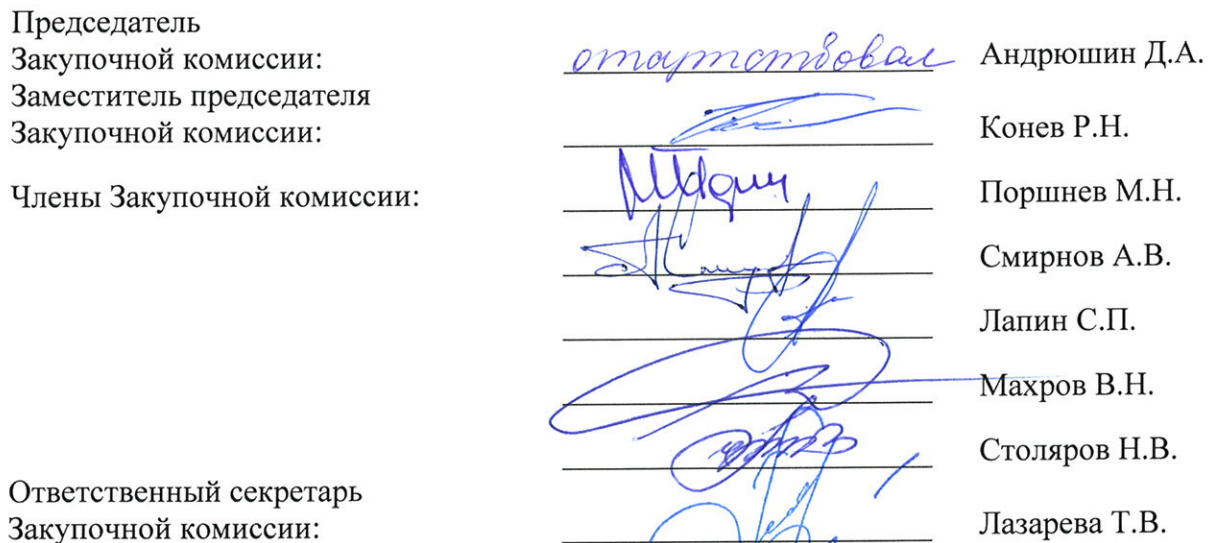 Председатель
Закупочной комиссии: отсутствовал Андрюшин Д.А.
Заместитель председателя
Закупочной комиссии: Конев Р.Н.
Члены Закупочной комиссии: Поршнев М.Н.
Смирнов А.В.
Лапин С.П.
Махров В.Н.
Столяров Н.В.
Ответственный секретарь
Закупочной комиссии: Лазарева Т.В.